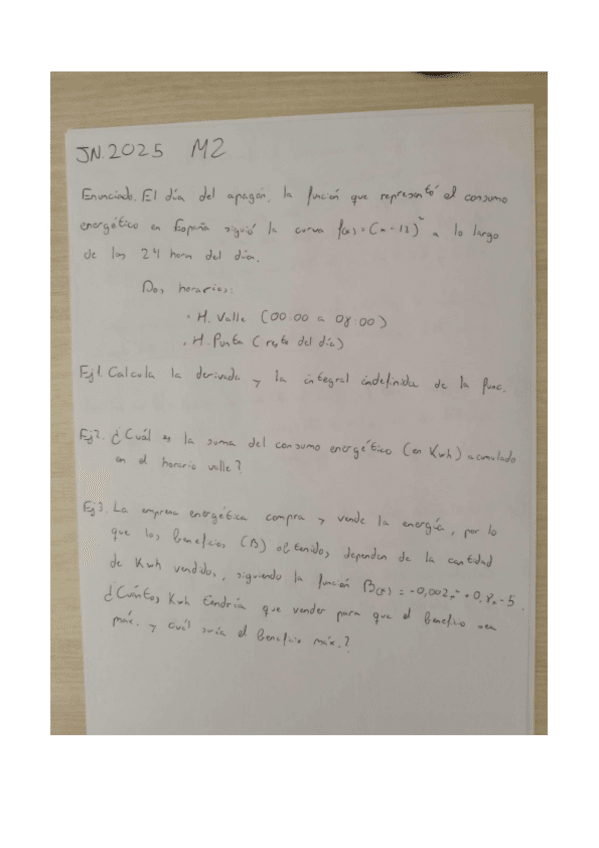 JN.2025 M2
Enunciado. El día del apagón, la función que representó el consumo
energético en España siguió la curva f(x)=(x-12)² a lo largo
de las 24 horas del día.
Dos horarios:
· H. Valle (00:00 a 08:00)
· H. Punta (resto del día)
Ej1. Calcula la derivada y la integral indefinida de la func.
Ej2. ¿Cuál es la suma del consumo energético (en Kwh) acumulado
en el horario valle?
Ej3. La empresa energética compra y vende la energía, por lo
que los beneficios (B) obtenidos dependen de la cantidad
de Kwh vendidos, siguiendo la función B(x) = -0,002x² +
¿Cuántos Kwh tendría que vender para que el beneficio sea
máx. y cuál sería el beneficio máx.?